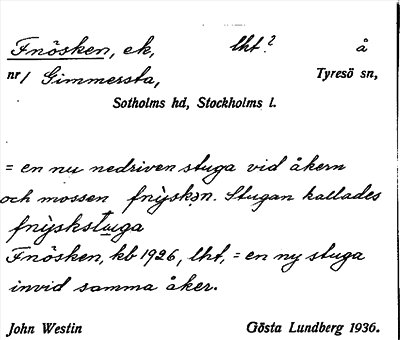 Fnösken, ek, lht? å
nr 1 Gimmersta, Tyresö sn,
Sotholms hd, Stockholms l.
= en nu nedriven stuga vid åkern
och mossen fnỳskən. Stugan kallades
fnỳskstuga
Fnösken, kb 1926, lht, = en ny stuga
invid samma åker.
John Westin Gösta Lundberg 1936.